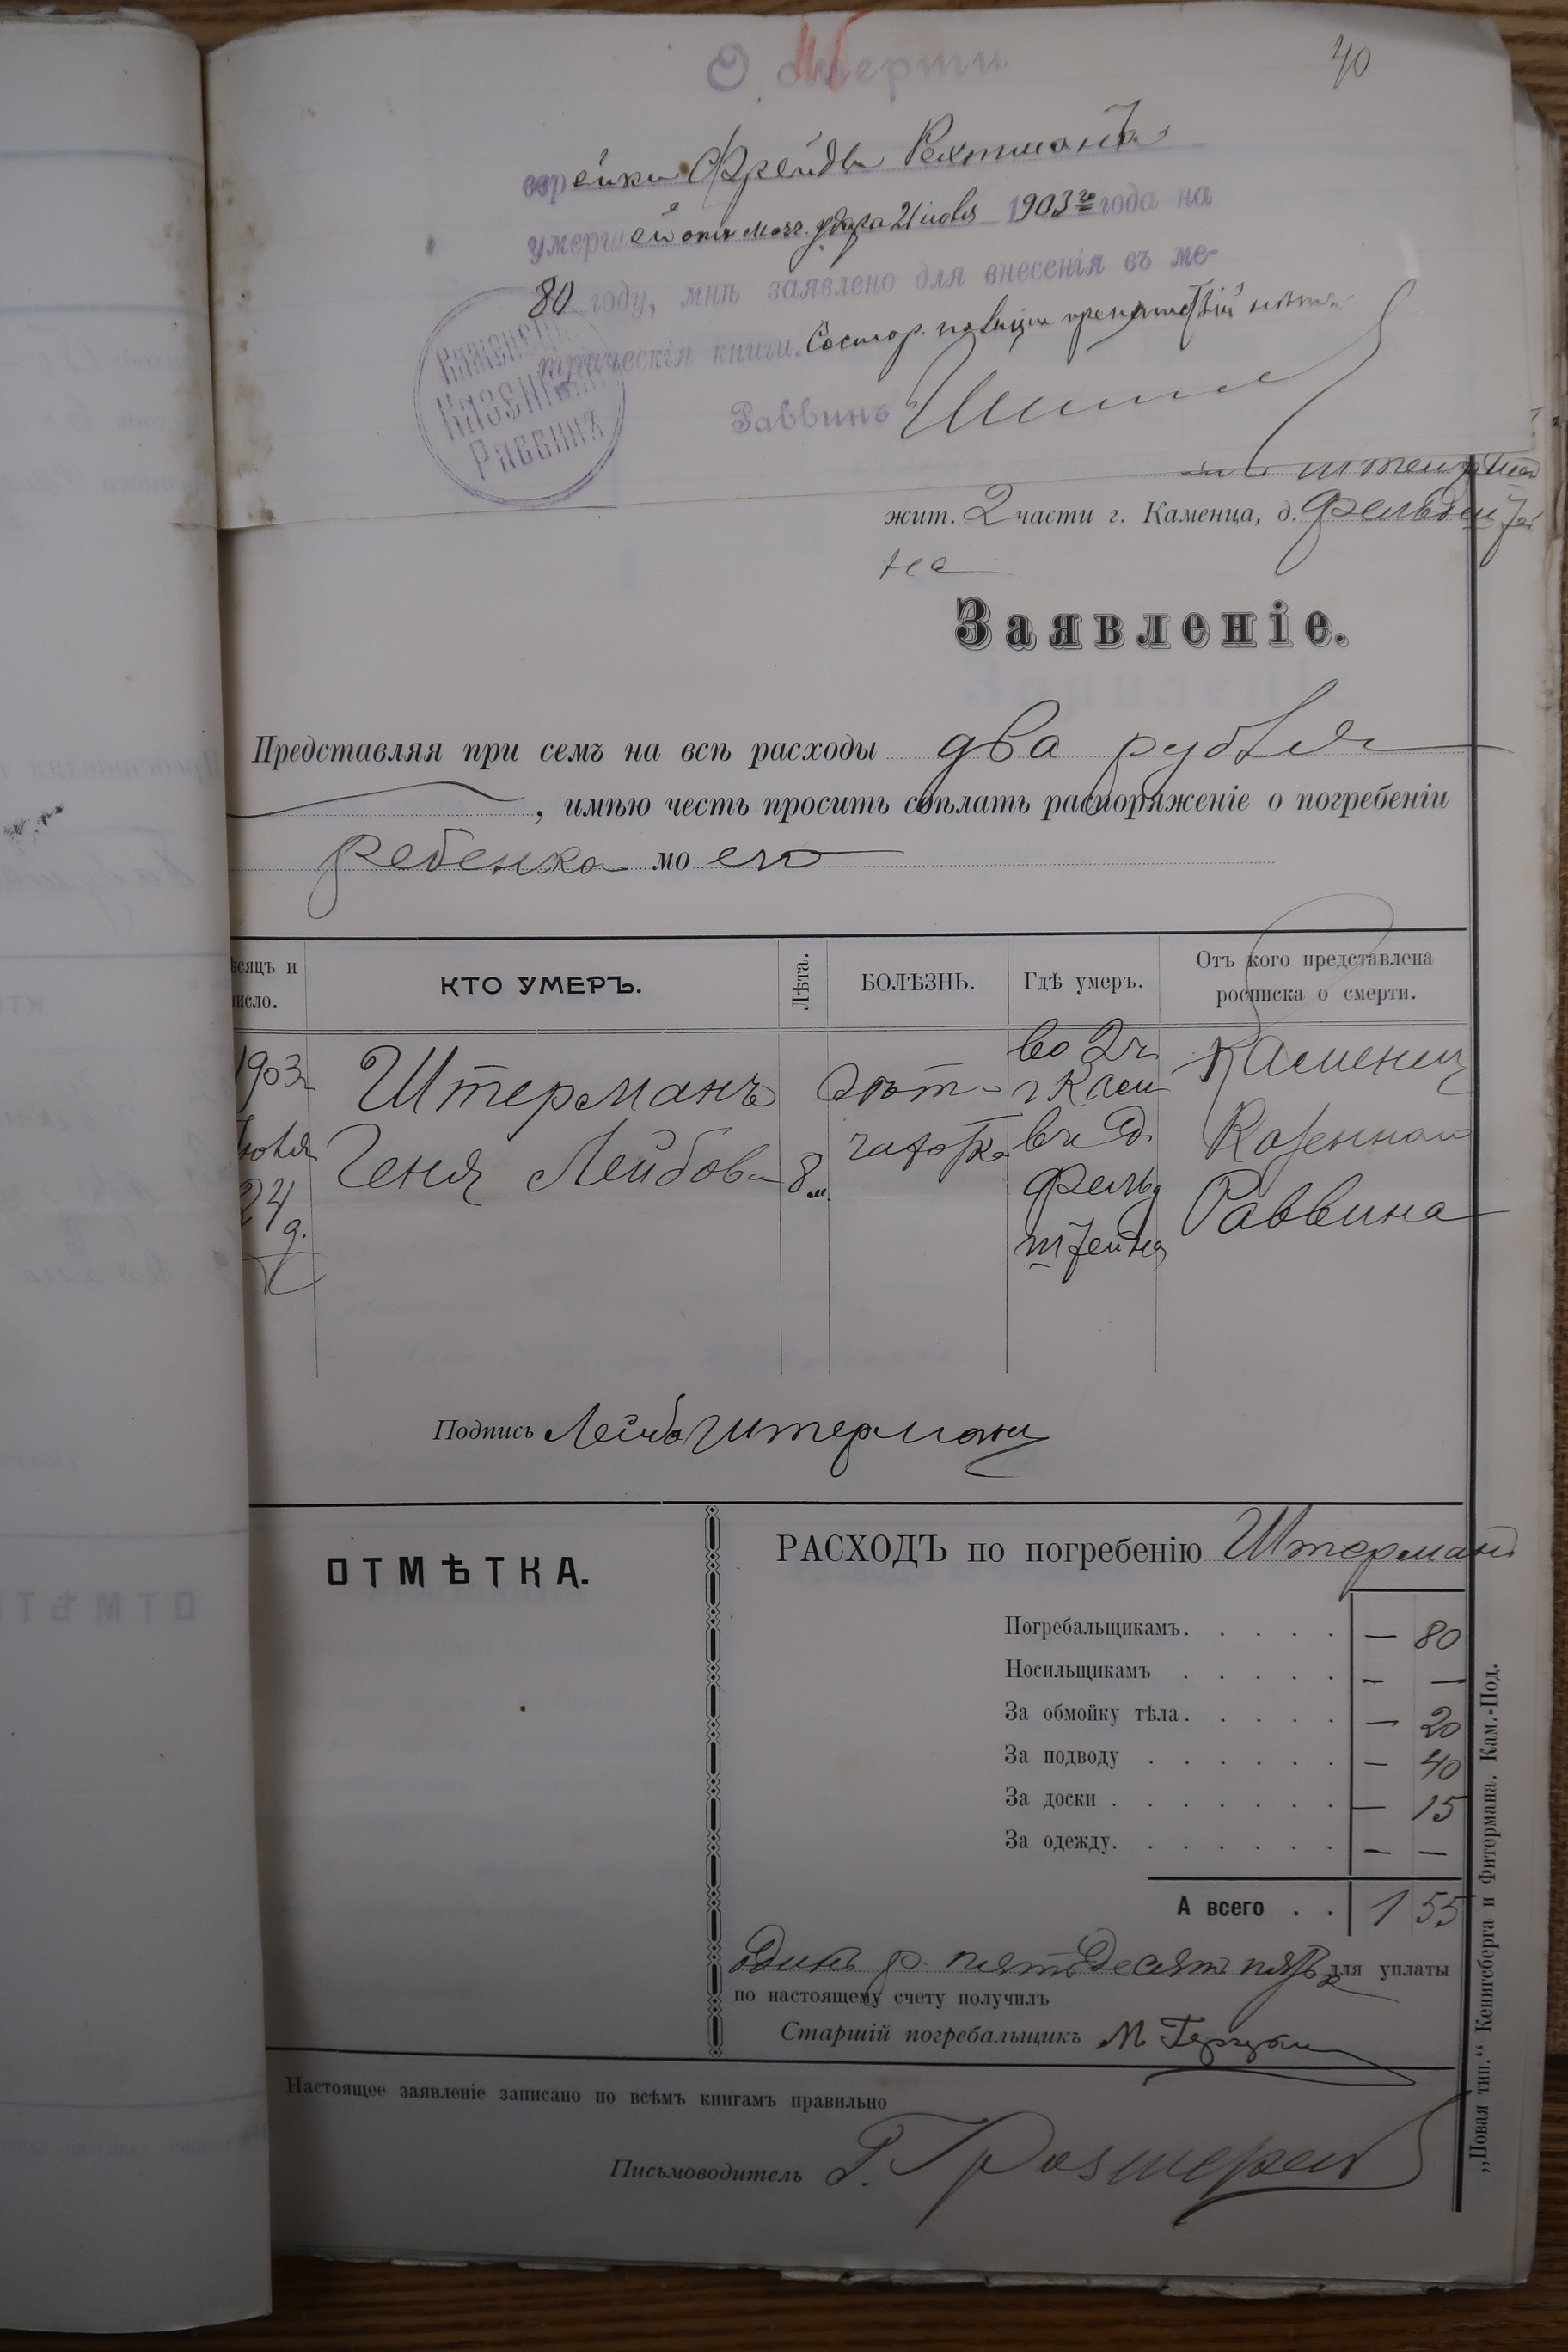 40
О смерти
еврейки Фрейды Рехтманъ
умершей отъ мозг. удара 21 іюля 1903 г. года на
80 году, мнѣ заявлено для внесенія въ ме-
трическія книги. Со стор. полиціи препятствій нѣтъ
Раввинъ
Каменецкій
Казенный
Раввинъ
Штерман
жит. 2 части г. Каменца, д. Фельдштей
на
Заявленіе.
Представляя при семъ на всѣ расходы два рубля
, имѣю честь просить сдѣлать распоряженіе о погребеніи
ребенка моего
ѣсяцъ и число.
КТО УМЕРЪ.
Лѣта.
БОЛѢЗНЬ.
Гдѣ умеръ.
Отъ кого представлена
росписка о смерти.
1903
Іюля
24 д.
Штерманъ
Геня Лейбовы
8 м.
чахотка
во 2 ч.
г. Кам
въ д.
Фельд
штейна
Каменец
Казеннаго
Раввина
Подпись Лейба Штерманъ
ОТМѢТКА.
РАСХОДЪ по погребенію Штерманъ
Погребальщикамъ. . . . . — 80
Носильщикамъ . . . . . — —
За обмойку тѣла. . . . . — 20
За подводу . . . . . . — 40
За доски . . . . . . . — 15
За одежду. . . . . . . — —
А всего . . 1 55
одинъ р. пятьдесятъ пять к для уплаты
по настоящему счету получилъ
Старшій погребальщикъ М
Настоящее заявленіе записано по всѣмъ книгамъ правильно
Письмоводитель Г.
„Новая тип.“ Кенигсберга и Фитермана. Кам.-Под.